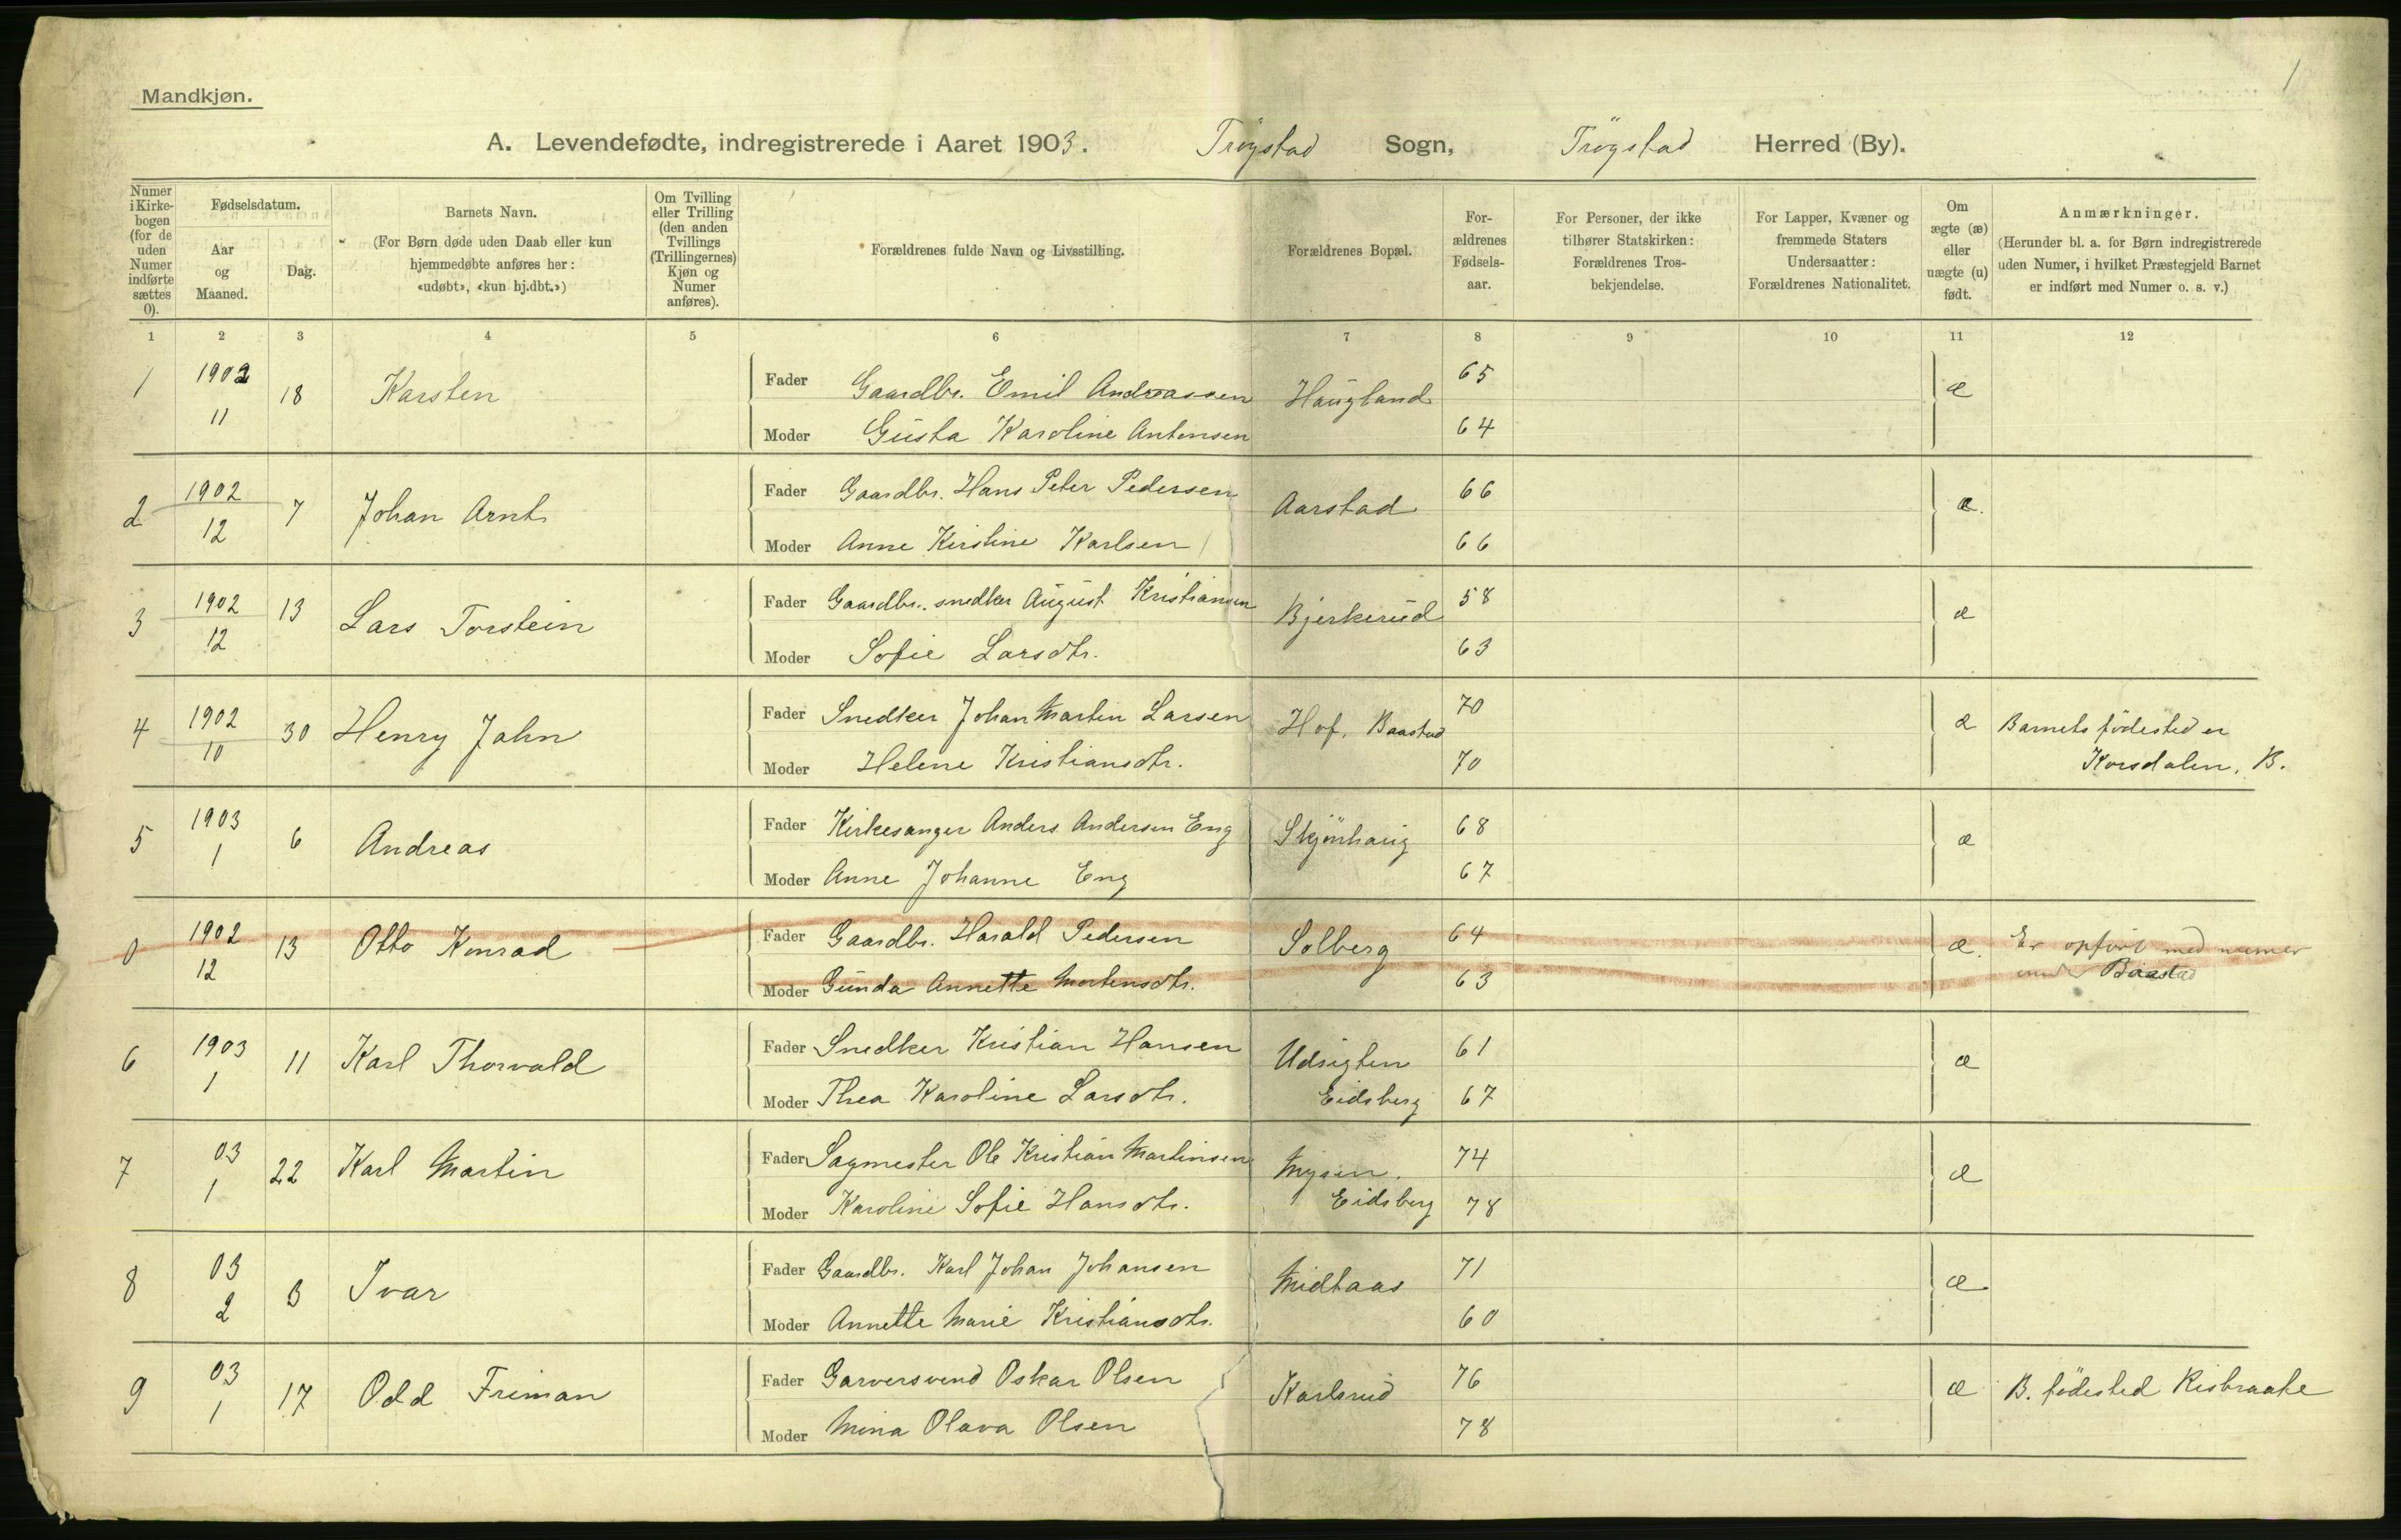 1
Mandkjøn.
A. Levendefødte, indregistrerede i Aaret 1903. Trögstad Sogn, Trögstad Herred (By).
Numer i Kirkebogen (for de uden Numer indførte sættes 0). Fødselsdatum. Aar og Maaned. Dag. Barnets Navn. (For Børn døde uden Daab eller kun hjemmedøbte anføres her: «udøbt», «kun hj.dbt.») Om Tvilling eller Trilling (den anden Tvillings (Trillingernes) Kjøn og Numer anføres). Forældrenes fulde Navn og Livsstilling. Forældrenes Bopæl. Forældrenes Fødselsaar. For Personer, der ikke tilhører Statskirken: Forældrenes Trosbekjendelse. For Lapper, Kvæner og fremmede Staters Undersaatter: Forældrenes Nationalitet. Om ægte (æ) eller uægte (u) født. Anmærkninger. (Herunder bl. a. for Børn indregistrerede uden Numer, i hvilket Præstegjeld Barnet er indført med Numer o. s. v.)
1 2 3 4 5 6 7 8 9 10 11 12
1 1902 11 18 Karsten Fader Gaardbr. Emil Andreassen Haugland 65 æ
Moder Gusta Karoline Antonsen 64
2 1902 12 7 Johan Arnt Fader Gaardbr. Hans Peter Pedersen Aarstad 66 æ.
Moder Anne Kirstine Karlsen 66
3 1902 12 13 Lars Torstein Fader Gaardbr. snedker August Kristiansen Bjerkerud 58 æ
Moder Sofie Larsdtr. 63
4 1902 10 30 Henry Jahn Fader Snedker Johan Martin Larsen Hof, Baastad 70 æ Barnets födested er
Moder Helene Kristiansdtr. 70 Korsdalen, B.
5 1903 1 6 Andreas Fader Kirkesanger Anders Andersen Eng Skjönhaug 68 æ
Moder Anne Johanne Eng 67
0 1902 12 13 Otto Konrad Fader Gaardbr. Harald Pedersen Solberg 64 æ. Er opført med numer
Moder Gunda Annette Mortensdtr. 63 under Baastad
6 1903 1 11 Karl Thorvald Fader Snedker Kristian Hansen Udsigten 61 æ
Moder Thea Karoline Larsdtr. Eidsberg 67
7 03 1 22 Karl Martin Fader Sagmester Ole Kristian Martinsen Mysen. 74 æ
Moder Karoline Sofie Hansdtr. Eidsberg 78
8 03 2 3 Ivar Fader Gaardbr. Karl Johan Johansen Midtaas 71 æ
Moder Annette Marie Kristiansdtr. 60
9 03 1 17 Odd Friman Fader Garversvend Oskar Olsen Karlsrud 76 æ B. födested Risbraate
Moder Mina Olava Olsen 78